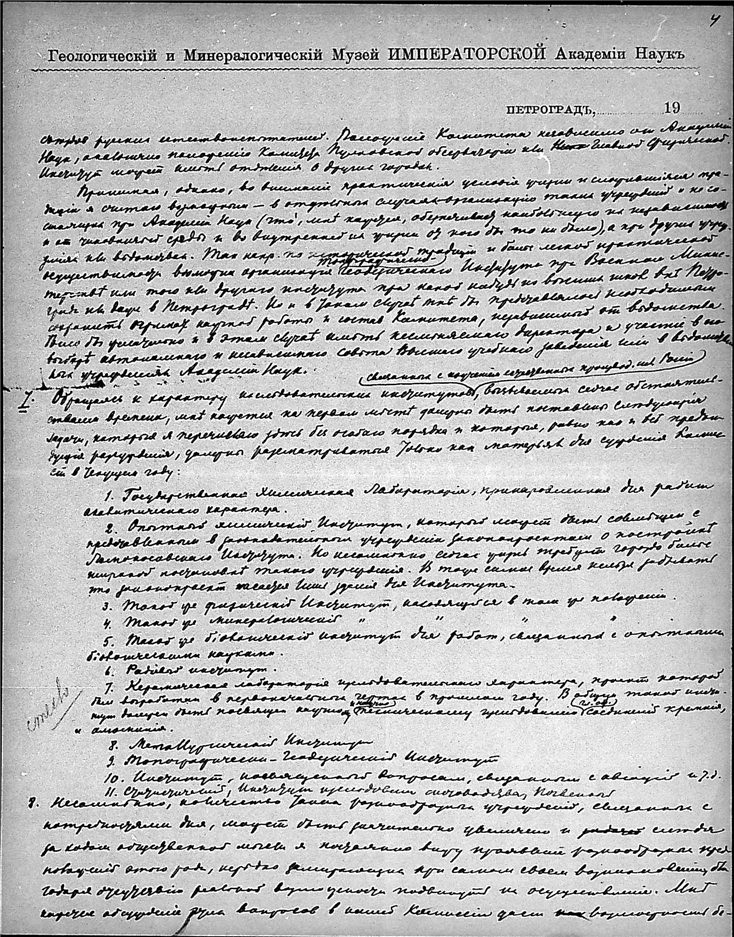 4
Геологическій и Минералогическій Музей ИМПЕРАТОРСКОЙ Академіи Наукъ
ПЕТРОГРАДЪ, 19
русских естествоиспытателей. Комитета независимо от Академіи
Наук, аналогично положению Пулковской обсерваторіи или Главной Физической.
Институт может иметь отделения в других городах.
Принимая, однако, во внимание практическия условия жизни и сложившияся тра-
диціи я считаю возможным — в отдельных случаях организацию таких учреждений и не со-
стоящих при Академіи Наук (что, мне кажется, обезпечивает наибольшую их независимость
и от чиновничьей среды и во внутренней их жизни от кого бы то ни было), а при других учреж-
дениях или ведомствах. Так напр. по исторической традиціи и более легкой практической
осуществимости возможна организація Топографически Геодезическаго Института при Военном Минис-
терстве или того или другого института при какой нибудь из высших школ вне Петро-
града или даже в Петрограде. Но и в таком случае мне бы представлялось необходимым
сохранить научной работы и состав Комитета, независимой от ведомства.
Было бы желательно и в этом случае иметь несменяемаго директора и участие в его
выборе автономнаго и независимаго совета Высшаго учебнаго заведения или в
учреждениях Академіи Наук.
связанных с изучением естественных производ. сил Россіи
7. Обращаясь к характеру изследовательских институтов, вызываемых сейчас обстоятель-
ствами времени, мне кажется на первом месте должны быть поставлены следующия
задачи, которыя я перечисляю здесь без особаго порядка и которыя, равно как и все преды-
дущия разсуждения, должны разсматриваться только как материал для суждения Комис-
сіи в текущем году:
1. Государственная Химическая Лабораторія, приноровленная для работ
аналитическаго характера.
2. Опытный химический Институт, который может быть совмещен с
представленным в законодательныя учреждения законопроектом о постройке
Ломоносовскаго Института. Но несомненно сейчас жизнь требует гораздо более
широкой постановки такого учреждения. В тоже самое время нельзя забывать
что законопроект касается лишь здания для Института.
3. Такой же физический Институт, находящийся в том же положении.
4. Такой же минералогический " " "
5. Такой же біохимический институт для работ, связанных с опытными
біологическими науками.
6. Радіевый институт.
7. Керамическая лабораторія изследовательскаго характера, проект которой
был выработан в первоначальных чертах в прошлом году. В общем такой инсти-
тут должен быть посвящен научно техническому изследованию соединений кремния,
и алюминия.
стекло
8. Металлургический Институт
9. Топографически-Геодезический Институт
10. Институт, посвященный вопросам, связанным с авіаціей и т.д.
11. Институт изследования скотоводства, Почвенный
8. Несомненно, количество таких разнообразных учреждений, связанных с
потребностями дня, может быть значительно увеличено и следя
за ходом общественной мысли я постоянно вижу проявления разнообразных пред-
положений этого рода, нередко замирающих при самом своем возникновении, бла-
годаря отсутствию реальной возможности подвинуть их осуществление. Мне
кажется обсуждение ряда вопросов в нашей Комиссіи даст возможность бо-